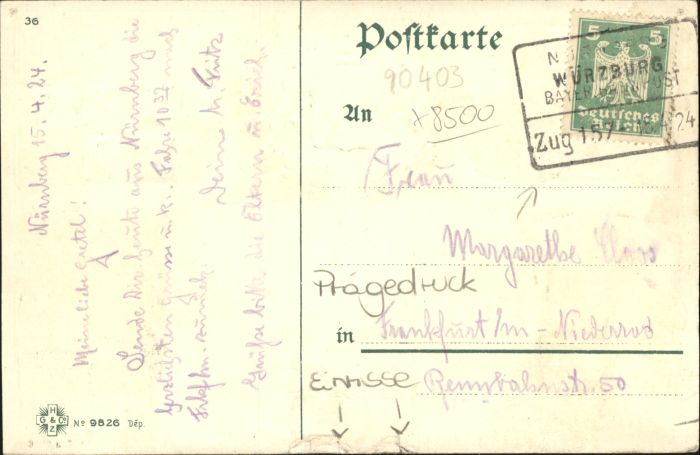 36
Nürnberg 15.4.24.
Meine liebe Gretel!
Sende Dir heute aus Nürnberg die
herzlichsten Grüsse u. k. Fahre 10 37 nach
Frkf/m. zurück
Dein Fritz
Grüße bitte die Eltern u. Erich.
H
G & C
Z
No 9826 Dép.
Postkarte
90403
x8500
An
Frau
Margarethe
Prägedruck
in Frankfurt/m - Niederrad
Einrisse Rennbahnstr. 50
5 5
Deutsches
Reich
N
WÜRZBURG
BAYER POST
Zug 157 24